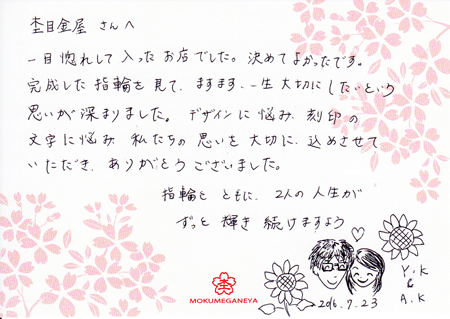 杢目金屋 さんへ
一目惚れして入ったお店でした。決めてよかったです。
完成した指輪を見て、ますます、一生大切にしたいという
思いが深まりました。デザインに悩み、刻印の
文字に悩み、私たちの思いを大切に、込めさせて
いただき、ありがとうございました。
指輪と ともに、2人の人生が
ずっと 輝き 続けますよう
Y.K
&
A.K
2016.7.23
MOKUMEGANEYA